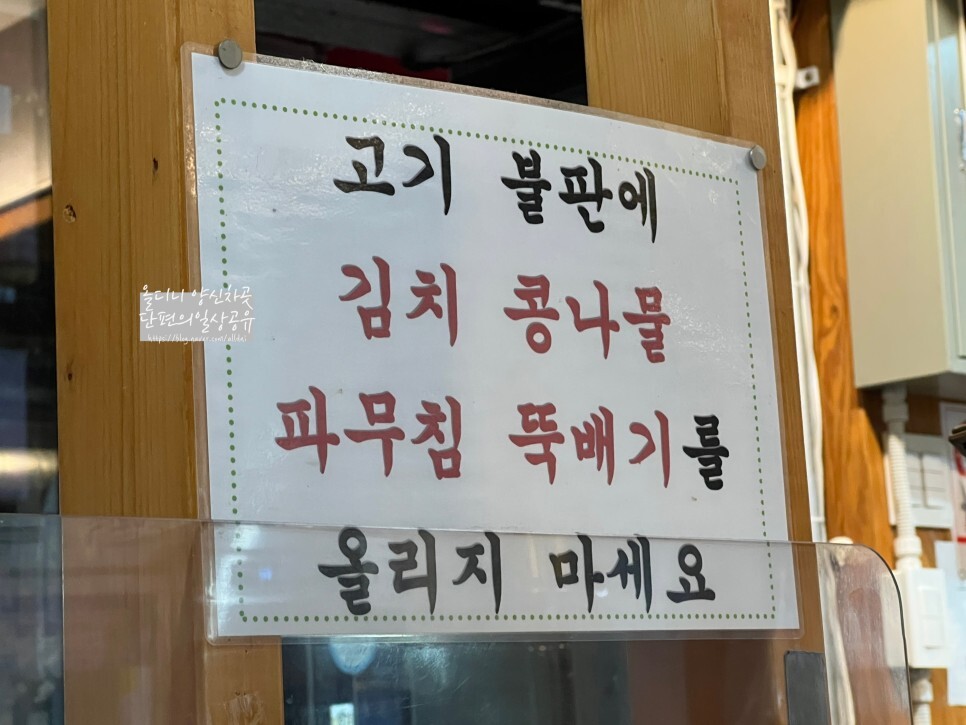 고기 불판에
김치 콩나물
파무침 뚝배기를
올리지 마세요
올디니 양신차곳
단편의일상공유